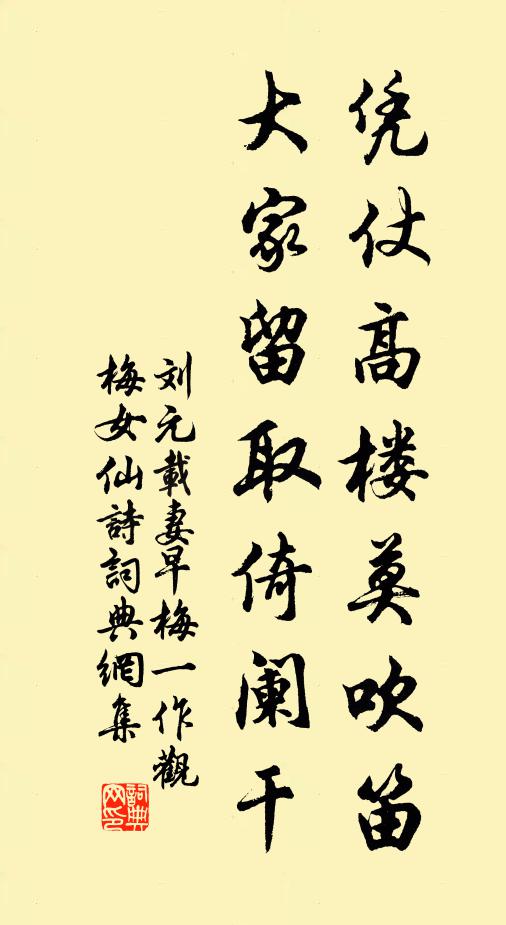 凭仗高楼莫吹笛
大家留取倚阑干
刘元載妻早梅一作觀
梅女仙詩詞典網集
詞典
网印